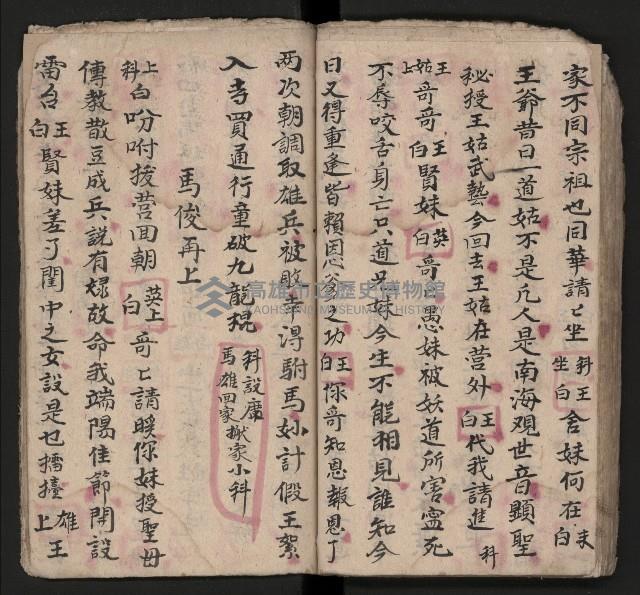 家不同宗祖也同華請〻坐 科王坐白 舍妹何在 末白
王爺昔日一道姑不是凢人是南海观世音顯聖
秘授王姑武藝今回去王姑在营外 王白 代我請進 科
王姑上 哥哥 王白 賢妹 英白 哥〻愚妹被妖道所害寧死
不辱咬舌身亡只道兄妹今生不能相見誰知今
日又得重逢皆賴恩爺之功 王白 你哥知恩報恩了
两次朝調取雄兵被敗幸得駙馬妙計假王絮
入寺買通行童破九龍棍 科設康馬雄回家 家小科
馬俊再上
上科 白吩咐拨营回朝 英上白 哥〻請暖你妹授聖母
傳教散豆成兵説有 故命我端陽佳節開設
雷台 王白 賢妹差了閨中之女設是乜擂擡 雄王上
高雄市立歷史博物館
KAOHSIUNG MUSEUM OF HISTORY